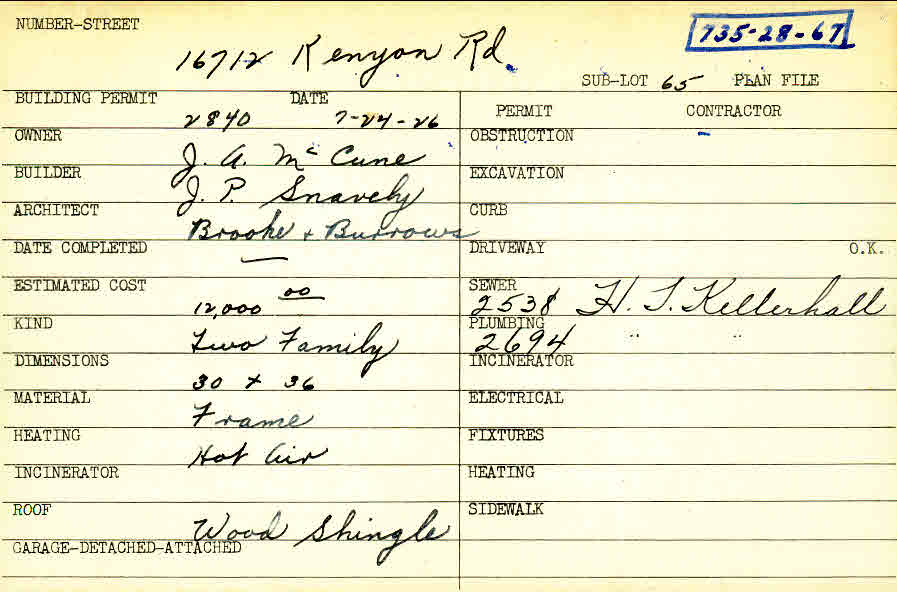 NUMBER-STREET
735-28-67
16712 Kenyon Rd.
SUB-LOT 65 PLAN FILE
BUILDING PERMIT DATE
2840 7-24-26
PERMIT CONTRACTOR
OWNER
J. A. Mc Cune
OBSTRUCTION
BUILDER
J. P. Snavely
EXCAVATION
ARCHITECT
Brooke + Burrows
CURB
DATE COMPLETED
—
DRIVEWAY O.K.
ESTIMATED COST
12,000 00
SEWER
2538 H. J. Kellerhall
KIND
Two Family
PLUMBING
2694 " "
DIMENSIONS
30 x 36
INCINERATOR
MATERIAL
Frame
ELECTRICAL
HEATING
Hot Air
FIXTURES
INCINERATOR
HEATING
ROOF
Wood Shingle
SIDEWALK
GARAGE-DETACHED-ATTACHED